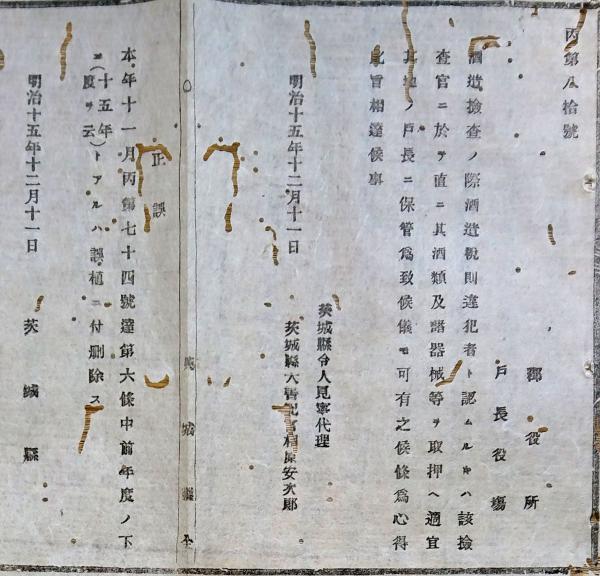 丙第八拾號
郡役所
戸長役塲
酒造檢査ノ際酒造税則違犯者ト認ムルキハ該檢
査官ニ於テ直ニ其酒類及諸器械等ヲ取押ヘ適宜
其地ノ戸長ニ保管爲致候儀モ可有之候條爲心得
此旨相達候事
明治十五年十二月十一日
茨城縣令人見寧代理
茨城縣大書記官相原安次郎
茨城縣
正誤
本年十一月丙第七十四號達第六條中前年度ノ下
(十五年度ヲ云)トアルハ誤植ニ付刪除ス
明治十五年十二月十一日
茨城縣